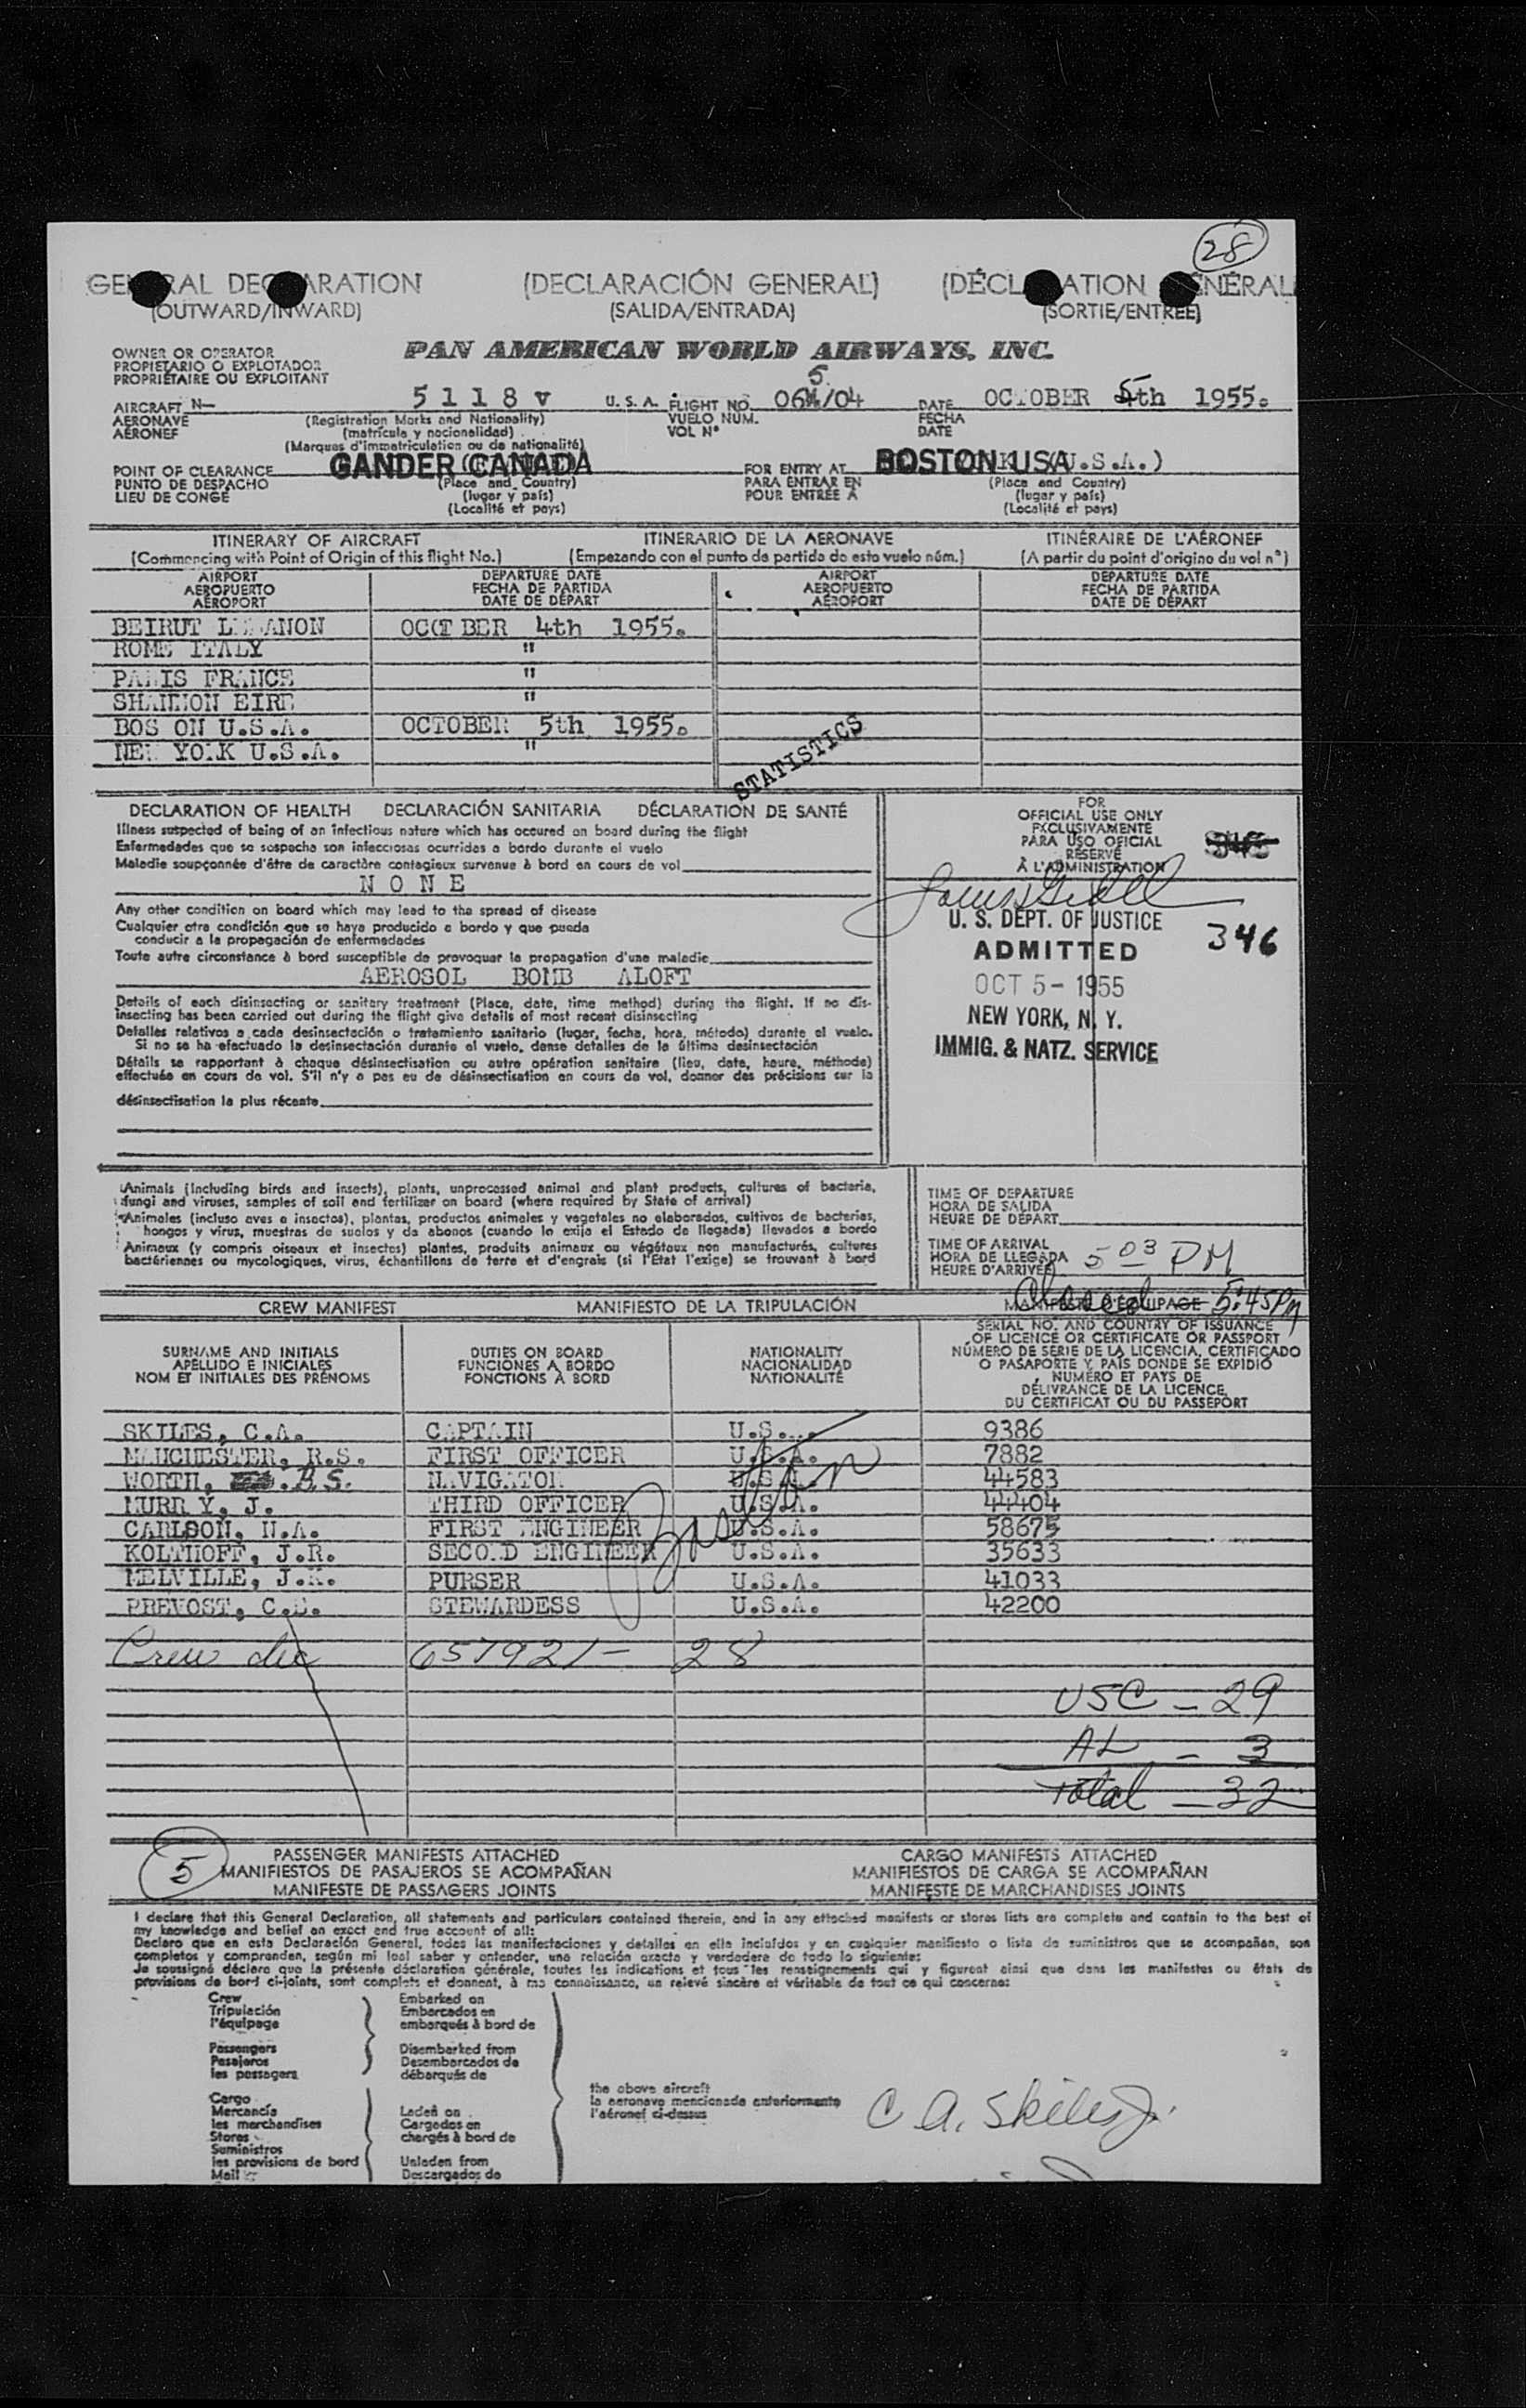 28
GENERAL DECLARATION (DECLARACIÓN GENERAL) (DÉCLARATION GÉNÉRALE
(OUTWARD/INWARD) (SALIDA/ENTRADA) (SORTIE/ENTRÉE)
OWNER OR OPERATOR
PROPIETARIO O EXPLOTADOR
PROPRIÉTAIRE OU EXPLOITANT
PAN AMERICAN WORLD AIRWAYS, INC.
AIRCRAFT N— 5 1 1 8 v U. S. A. FLIGHT NO. 06 5/04 DATE OCTOBER 5th 1955.
AERONAVE (Registration Marks and Nationality) VUELO NUM. FECHA
AÉRONEF (matrícula y nacionalidad) VOL Nº DATE
(Marques d'immatriculation ou de nationalité)
POINT OF CLEARANCE GANDER CANADA FOR ENTRY AT BOSTON USA (U.S.A.)
PUNTO DE DESPACHO (Place and Country) PARA ENTRAR EN (Place and Country)
LIEU DE CONGÉ (lugar y país) POUR ENTRÉE A (lugar y país)
(Localité et pays) (Localité et pays)
ITINERARY OF AIRCRAFT ITINERARIO DE LA AERONAVE ITINÉRAIRE DE L'AÉRONEF
(Commencing with Point of Origin of this flight No.) (Empezando con el punto de partida de esto vuelo núm.) (A partir du point d'origine du vol nº)
AIRPORT DEPARTURE DATE AIRPORT DEPARTURE DATE
AEROPUERTO FECHA DE PARTIDA AEROPUERTO FECHA DE PARTIDA
AÉROPORT DATE DE DÉPART AÉROPORT DATE DE DÉPART
BEIRUT LEBANON OCTOBER 4th 1955.
ROME ITALY "
PARIS FRANCE "
SHANNON EIRE "
BOSTON U.S.A. OCTOBER 5th 1955.
NEW YORK U.S.A. "
STATISTICS
DECLARATION OF HEALTH DECLARACIÓN SANITARIA DÉCLARATION DE SANTÉ
Illness suspected of being of an infectious nature which has occured on board during the flight
Enfermedades que se sospecha son infecciosas ocurridas a bordo durante el vuelo
Maladie soupçonnée d'être de caractère contagieux survenue à bord en cours de vol
N O N E
Any other condition on board which may lead to the spread of disease
Cualquier otra condición que se haya producido a bordo y que pueda
conducir a la propagación de enfermedades
Toute autre circonstance à bord susceptible de provoquer la propagation d'une maladie
AEROSOL BOMB ALOFT
Details of each disinsecting or sanitary treatment (Place, date, time method) during the flight. If no dis-
insecting has been carried out during the flight give details of most recent disinsecting
Detalles relativos a cada desinsectación o tratamiento sanitario (lugar, fecha, hora, método) durante el vuelo.
Si no se ha efectuado la desinsectación durante el vuelo, dense detalles de la última desinsectación
Détails se rapportant à chaque désinsectisation ou autre opération sanitaire (lieu, date, heure, méthode)
effectuée en cours de vol. S'il n'y a pas eu de désinsectisation en cours de vol, donner des précisions sur la
désinsectisation la plus récente
FOR
OFFICIAL USE ONLY
EXCLUSIVAMENTE
PARA USO OFICIAL
RÉSERVÉ
À L'ADMINISTRATION
U. S. DEPT. OF JUSTICE
ADMITTED 346
OCT 5 - 1955
NEW YORK, N. Y.
IMMIG. & NATZ. SERVICE
Animals (including birds and insects), plants, unprocessed animal and plant products, cultures of bacteria,
fungi and viruses, samples of soil and fertilizer on board (where required by State of arrival)
Animales (incluso aves e insectos), plantas, productos animales y vegetales no elaborados, cultivos de bacterias,
hongos y virus, muestras de suelos y de abonos (cuando lo exija el Estado de llegada) llevados a bordo
Animaux (y compris oiseaux et insectes) plantes, produits animaux ou végétaux non manufacturés, cultures
bactériennes ou mycologiques, virus, échantillons de terre et d'engrais (si l'État l'exige) se trouvant à bord
TIME OF DEPARTURE
HORA DE SALIDA
HEURE DE DÉPART
TIME OF ARRIVAL
HORA DE LLEGADA 5 03 PM
HEURE D'ARRIVÉE
CREW MANIFEST MANIFIESTO DE LA TRIPULACIÓN MANIFESTE D'ÉQUIPAGE 5:45 PM
SURNAME AND INITIALS DUTIES ON BOARD NATIONALITY SERIAL NO. AND COUNTRY OF ISSUANCE
APELLIDO E INICIALES FUNCIONES A BORDO NACIONALIDAD OF LICENCE OR CERTIFICATE OR PASSPORT
NOM ET INITIALES DES PRÉNOMS FONCTIONS À BORD NATIONALITÉ NÚMERO DE SERIE DE LA LICENCIA, CERTIFICADO
O PASAPORTE Y PAÍS DONDE SE EXPIDIÓ
NUMÉRO ET PAYS DE
DÉLIVRANCE DE LA LICENCE,
DU CERTIFICAT OU DU PASSEPORT
SKILES, C.A. CAPTAIN U.S.A. 9386
MANCHESTER, R.S. FIRST OFFICER U.S.A. 7882
WORTH, B.S. NAVIGATOR U.S.A. 44583
MURRAY, J. THIRD OFFICER U.S.A. 44404
CARLSON, N.A. FIRST ENGINEER U.S.A. 58675
KOLTHOFF, J.R. SECOND ENGINEER U.S.A. 35633
MELVILLE, J.K. PURSER U.S.A. 41033
PREVOST, C.D. STEWARDESS U.S.A. 42200
Boston
Crew dec 657921 - 28
USC - 29
AL - 3
Total - 32
5
PASSENGER MANIFESTS ATTACHED CARGO MANIFESTS ATTACHED
MANIFIESTOS DE PASAJEROS SE ACOMPAÑAN MANIFIESTOS DE CARGA SE ACOMPAÑAN
MANIFESTE DE PASSAGERS JOINTS MANIFESTE DE MARCHANDISES JOINTS
I declare that this General Declaration, all statements and particulars contained therein, and in any attached manifests or stores lists are complete and contain to the best of
my knowledge and belief an exact end true account of all:
Declaro que en esta Declaración General, todas las manifestaciones y detalles en ella incluídos y en cualquier manifiesto o lista de suministros que se acompañan, son
completos y comprenden, según mi leal saber y entender, una relación exacta y verdadera de todo lo siguiente:
Je soussigné déclare que la présente déclaration générale, toutes les indications et tous les renseignements qui y figurent ainsi que dans les manifestes ou états de
provisions de bord ci-joints, sont complets et donnent, à ma connaissance, un relevé sincère et véritable de tout ce qui concerne:
Crew Embarked on
Tripulación Embarcados en
l'équipage embarqués à bord de
Passengers Disembarked from
Pasajeros Desembarcados de
les passagers débarqués de
the above aircraft
la aeronave mencionada anteriormente
l'aéronef ci-dessus
C A. Skiles Jr.
Cargo
Mercancía Laden on
les merchandises Cargados en
Stores chargés à bord de
Suministros
les provisions de bord Unladen from
Mail Descargados de